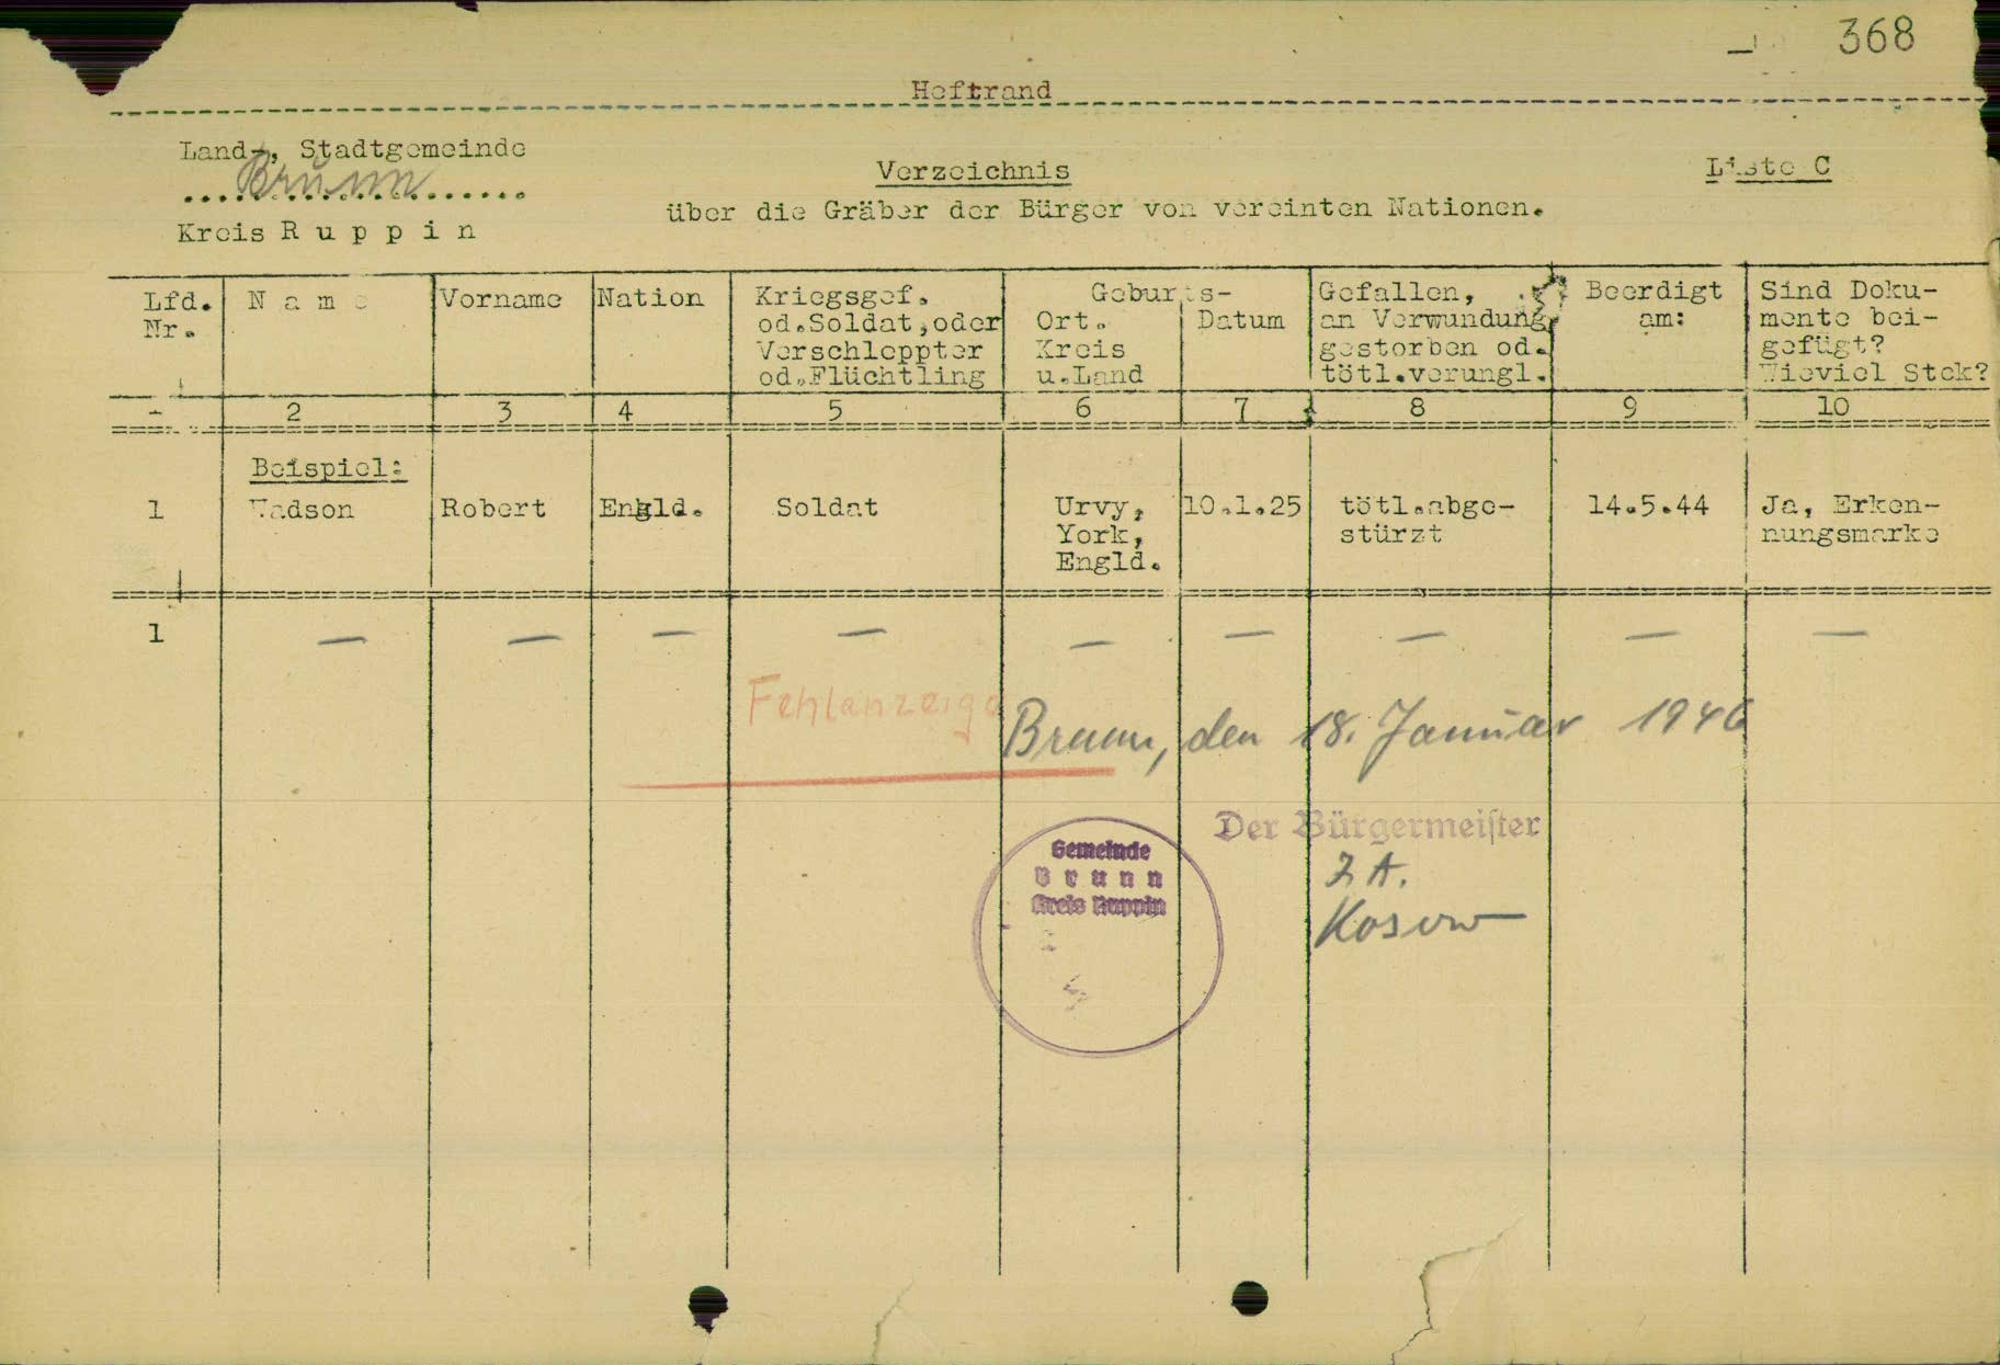 368
Heftrand
Land-, Stadtgemeinde
Brunn
Kreis R u p p i n
Verzeichnis
Liste C
über die Gräber der Bürger von vereinten Nationen.
Lfd. Nr.
N a m e
Vorname
Nation
Kriegsgef. od.Soldat,oder Verschleppter od.Flüchtling
Geburts-
Ort. Kreis u.Land
Datum
Gefallen, an Verwundung gestorben od. tötl.verungl.
Beerdigt am:
Sind Doku- mente bei- gefügt? Wieviel Stck?
- 2 3 4 5 6 7 8 9 10
Beispiel:
1 Wadson Robert Engld. Soldat Urvy, 10.1.25 tötl.abge- 14.5.44 Ja, Erken-
York, stürzt nungsmarke
Engld.
1 — — — — — — — — —
Fehlanzeige
Brunn, den 18. Januar 1946
Der Bürgermeister
Gemeinde
B r u n n
Kreis Ruppin